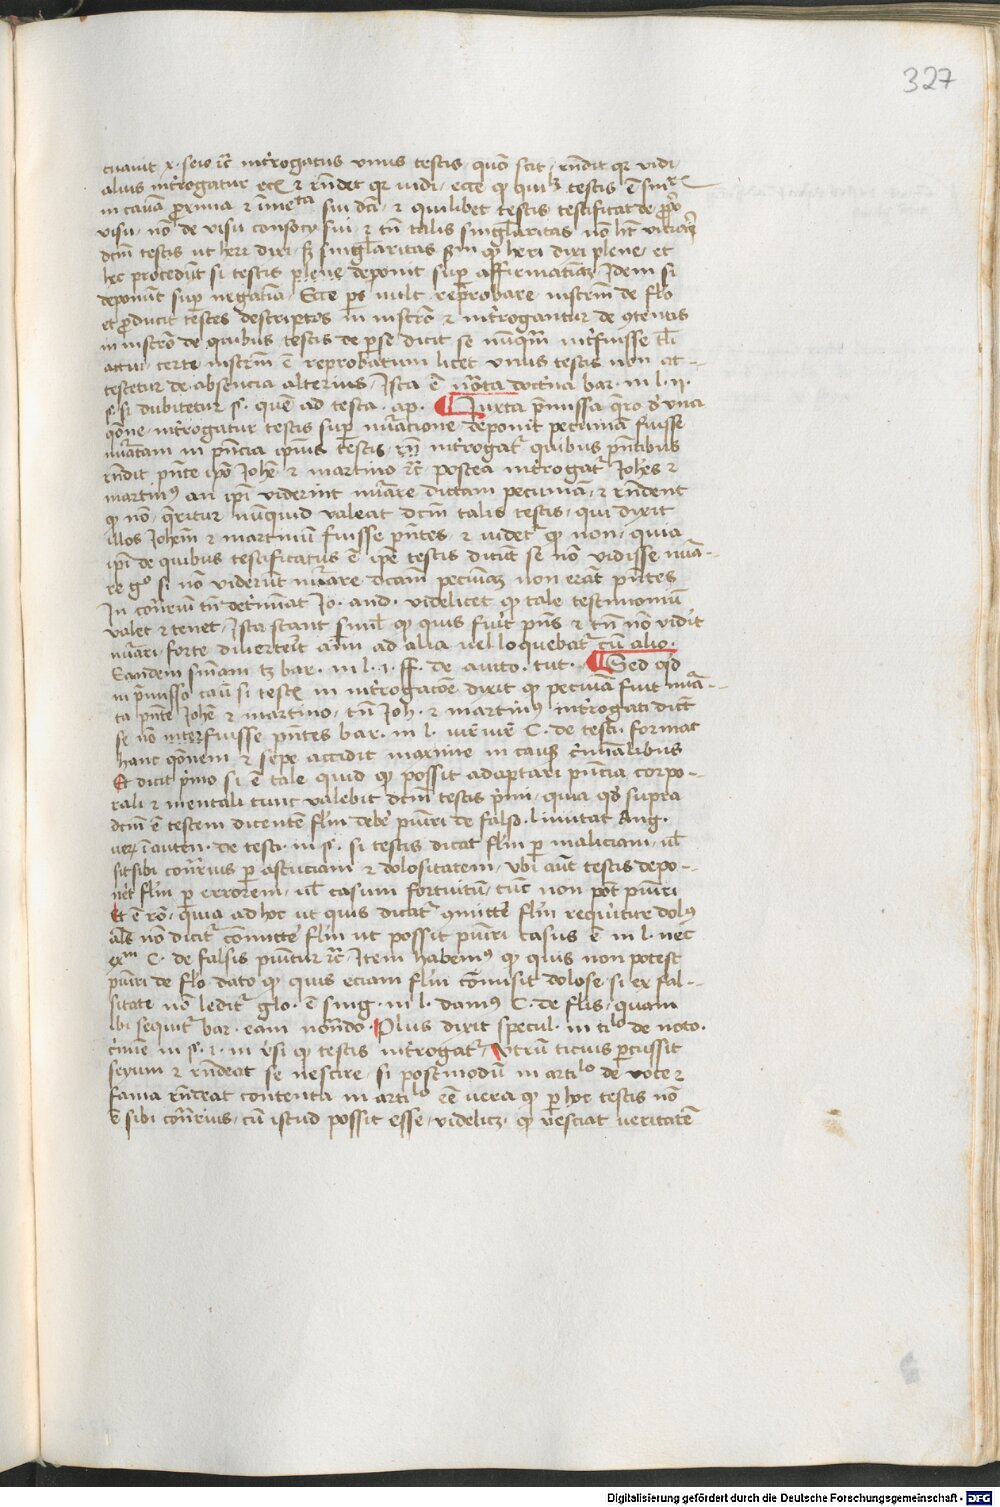 327
tuauit x. seio ꝛc̄ int̄rogatus vnus testis quō scit rn̄dit qꝛ vidi
alius int̄rogatur ecī ⁊ rn̄det qꝛ uidi ecce ꝙ testis ē
in cauā proxima ⁊ sui dc̄i ⁊ quilibet testis testificat de
visu nō de visu consocij sui ⁊ tn̄ talis singlaritas nō
dc̄m testis ut heri dixi sꝫ singlaritas ꝙ heri dixi plene et
hec procedūt si testis plene deponit suꝑ affirmatiuā Idem si
deponūt suꝑ negatiuā Ecce ꝑs uult reprobare instrm̄ de flo
et producit testes descriptos in instrō ⁊ int̄rogantur de ꝯtentis
in instrō de quibus testis de ꝑ se dicit se nūqm̄ int̄fuisse tl̄i
actui certe instrm̄ ē reprobatum licet vnus testis non at-
testetur de absencia alterius Ista ē nota doctrina bar. in l. ij.
§. si dubitetur ff. quē ad testa. ap. Iuxta p̄missa q̄ro de vna
qōne int̄rogatur testis suꝑ nūatione deponit pecuniam fuisse
nūatam in pn̄cia ipsius testis int̄rogat᷑ quibus pn̄tibus
rn̄dit pn̄te ipō Johē ⁊ martino ꝛc̄ postea int̄rogat᷑ Johēs ⁊
martinꝰ an ipi viderint nūare dictam pecuniā ⁊ rn̄dent
ꝙ nō q̄ritur nunquid valeat dc̄m talis testis qui dixit
illos Johem̄ ⁊ martinū fuisse pn̄tes ⁊ uidet᷑ ꝙ non quia
ipi de quibus testificatus ē ipe testis dicūt se nō vidisse nūa-
re gͦ si nō viderūt nūare dc̄am pecuniā non erāt pn̄tes
In cont̄riū tn̄ det̄mīat Jo. and. videlicet ꝙ tale testimoniū
valet ⁊ tenet Ista stant simul ꝙ quis fuit pn̄s ⁊ tn̄ nō vidit
nūari forte diuerterit aīm ad alia uel loquebat᷑ cū alio.
Eandem sniam tꝫ bar. in l. i. ff. de aucto. tut. Sed qd
in p̄misso casu si testis in int̄rogacōe dixit ꝙ pecuniā fuit nūa-
ta pn̄te Johē ⁊ martino tn̄ Joh. ⁊ martinꝰ int̄rogati dicūt
se nō interfuisse pn̄tes bar. in l. C. de testi. format
hanc qōnem ⁊ sepe accidit maxime in causis criminalibus
Et dicit p̄mo si ē tale quid ꝙ possit adaptari pn̄cia corpo-
rali ⁊ mentali tunc valebit dc̄m testis p̄mi quia qd supra
dc̄m ē testem dicentē flm̄ debē puniri de falso. limitat Ang.
in auten. de testi. in §. si testis dicat flm̄ ꝑ maliciam ul̄
sit sibi cont̄rius ꝑ astuciam ⁊ dolositatem vbi aūt testis depo-
net flm̄ ꝑ errorem ul̄ casum fortuitū tūc non pōt puniri
Et ē rō quia ad hoc ut quis dicat᷑ ꝯmitte flm̄ requiritur dolꝰ
als nō dicit᷑ cōmitte flm̄ ut possit puniri casus ē in l. nec
C. de falsis punitur ꝛc̄ Item habemꝰ ꝙ quis non potest
puniri de flo dato ꝙ quis eciam flm̄ cōmisit dolose si ex fal-
sitate nō ledit᷑ glo. ē sing. in l. damꝰ C. de flis quam
ibi sequit᷑ bar. eam nōndo Plus dixit specul. in tilo de noto.
crimīe in §. i. in v̄si ꝙ testis int̄rogat᷑ Vtrū ticius percussit
seyum ⁊ rn̄deat se nescire si postmodū in artilo de voce ⁊
fama rn̄deat contenta in artilo eē uera ꝙ ꝑ hoc testis nō
ē sibi cont̄rius cū istud possit esse videlicꝫ ꝙ nesciat veritatē
Digitalisierung gefördert durch die Deutsche Forschungsgemeinschaft - DFG